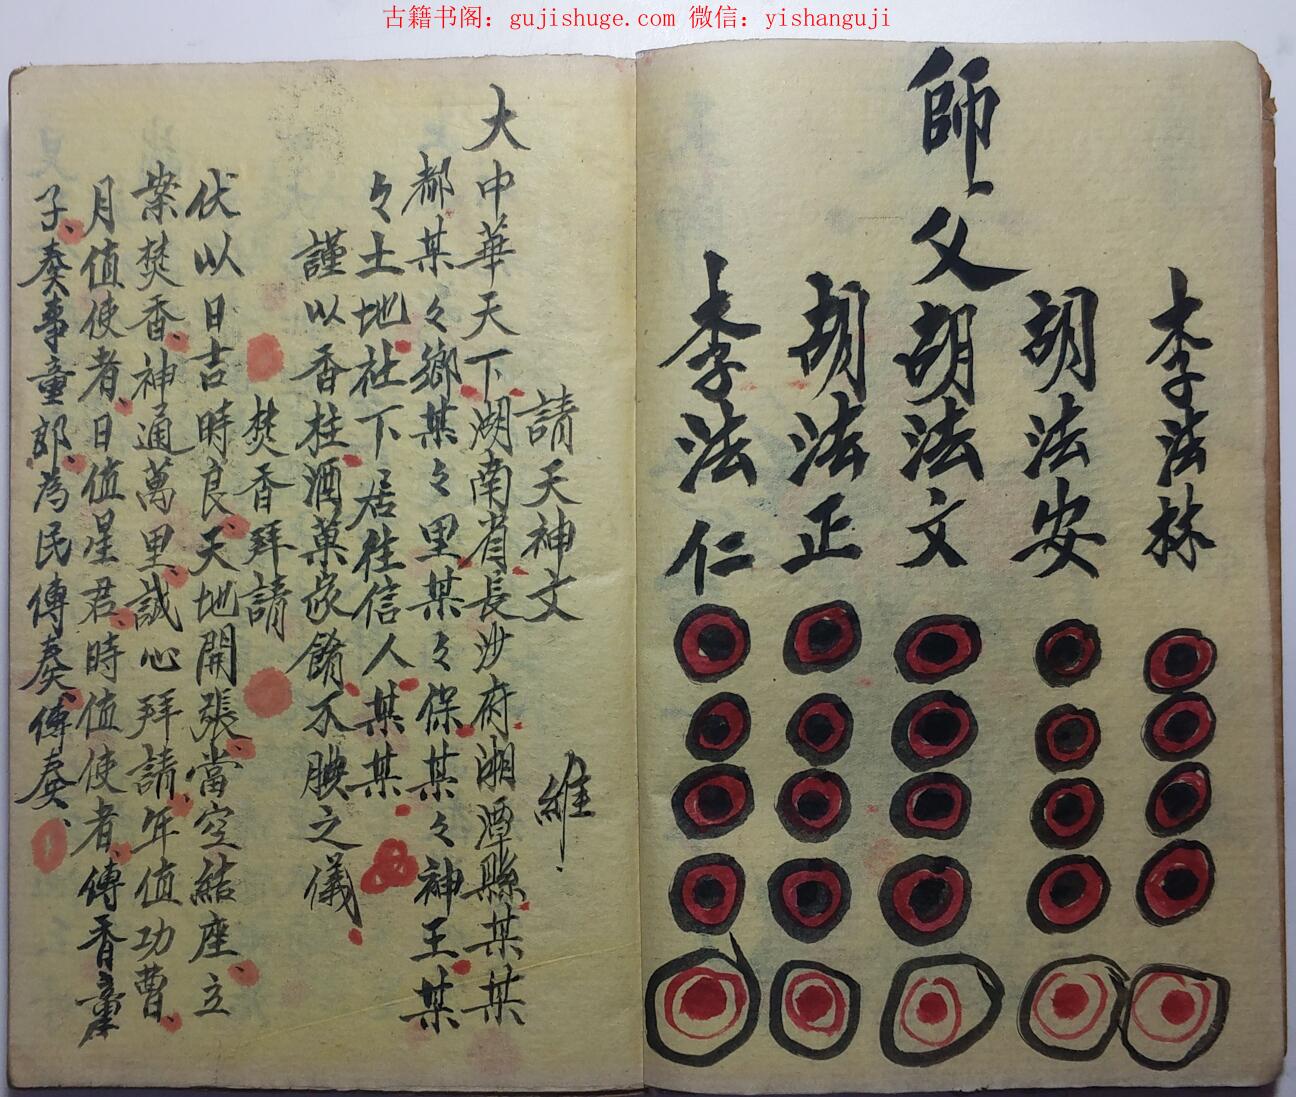 古籍书阁：gujishuge.com 微信：yishanguji
李法林
胡法安
師父胡法文
胡法正
李法仁
請天神文 維
大中華天下湖南省長沙府湘潭縣某某
都某々鄉某々里某々保某々神王某
々土地社下居住信人某某
謹以香柱酒菓餚不腆之儀
焚香拜請
伏以日吉時良天地開張當空結座立
案焚香神通萬里誠心拜請年值功曹
月值使者日值星君時值使者傳香童
子奏事童郎為民傳奏傳奏